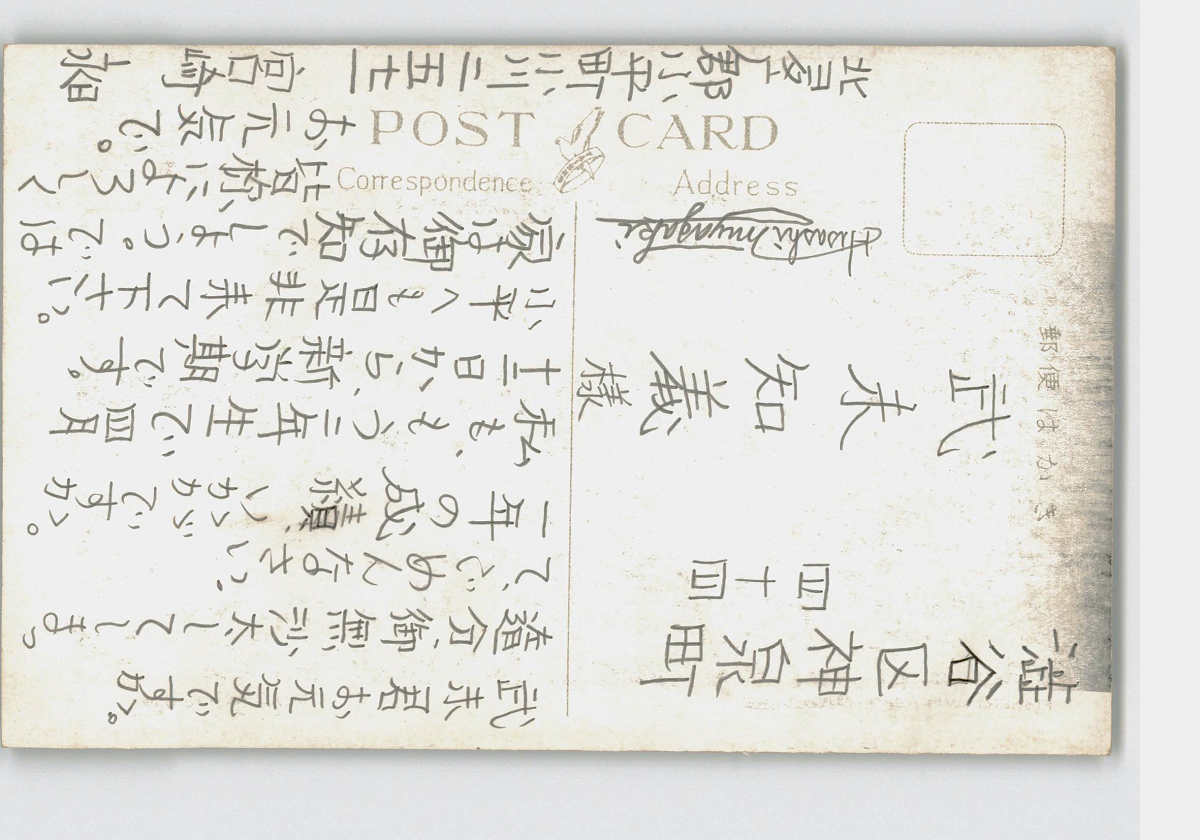 POST CARD
Correspondence
Address
郵便はかき
澁谷区神泉町
四十四
武末知義様
Hisashi Miyazaki
武末君お元気ですか。
随分御無沙汰してしまっ
て、ごめんなさい。
一年の成績、いかがですか。
私も、もう二年生で四月
十二日から、新学期です。
小平へも是非来て下さい。
家は御存知でしょう。では
皆様によろしく
お元気で。
北多摩郡小平町小川二五七一 宮崎